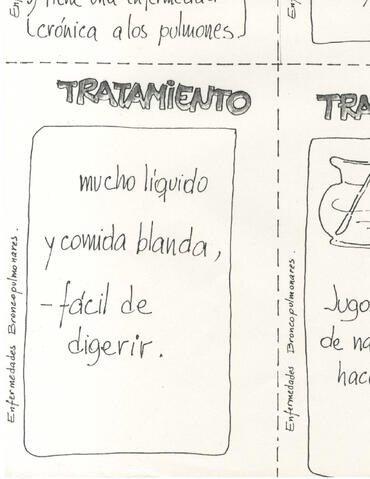 tiene una enfermedad
crónica a los pulmones.
TRATAMIENTO
mucho líquido
y comida blanda,
- fácil de
digerir.
Enfermedades Broncopulmonares.
TRA
Jugo
de na
hac
Enfermedades Broncopulmonares.